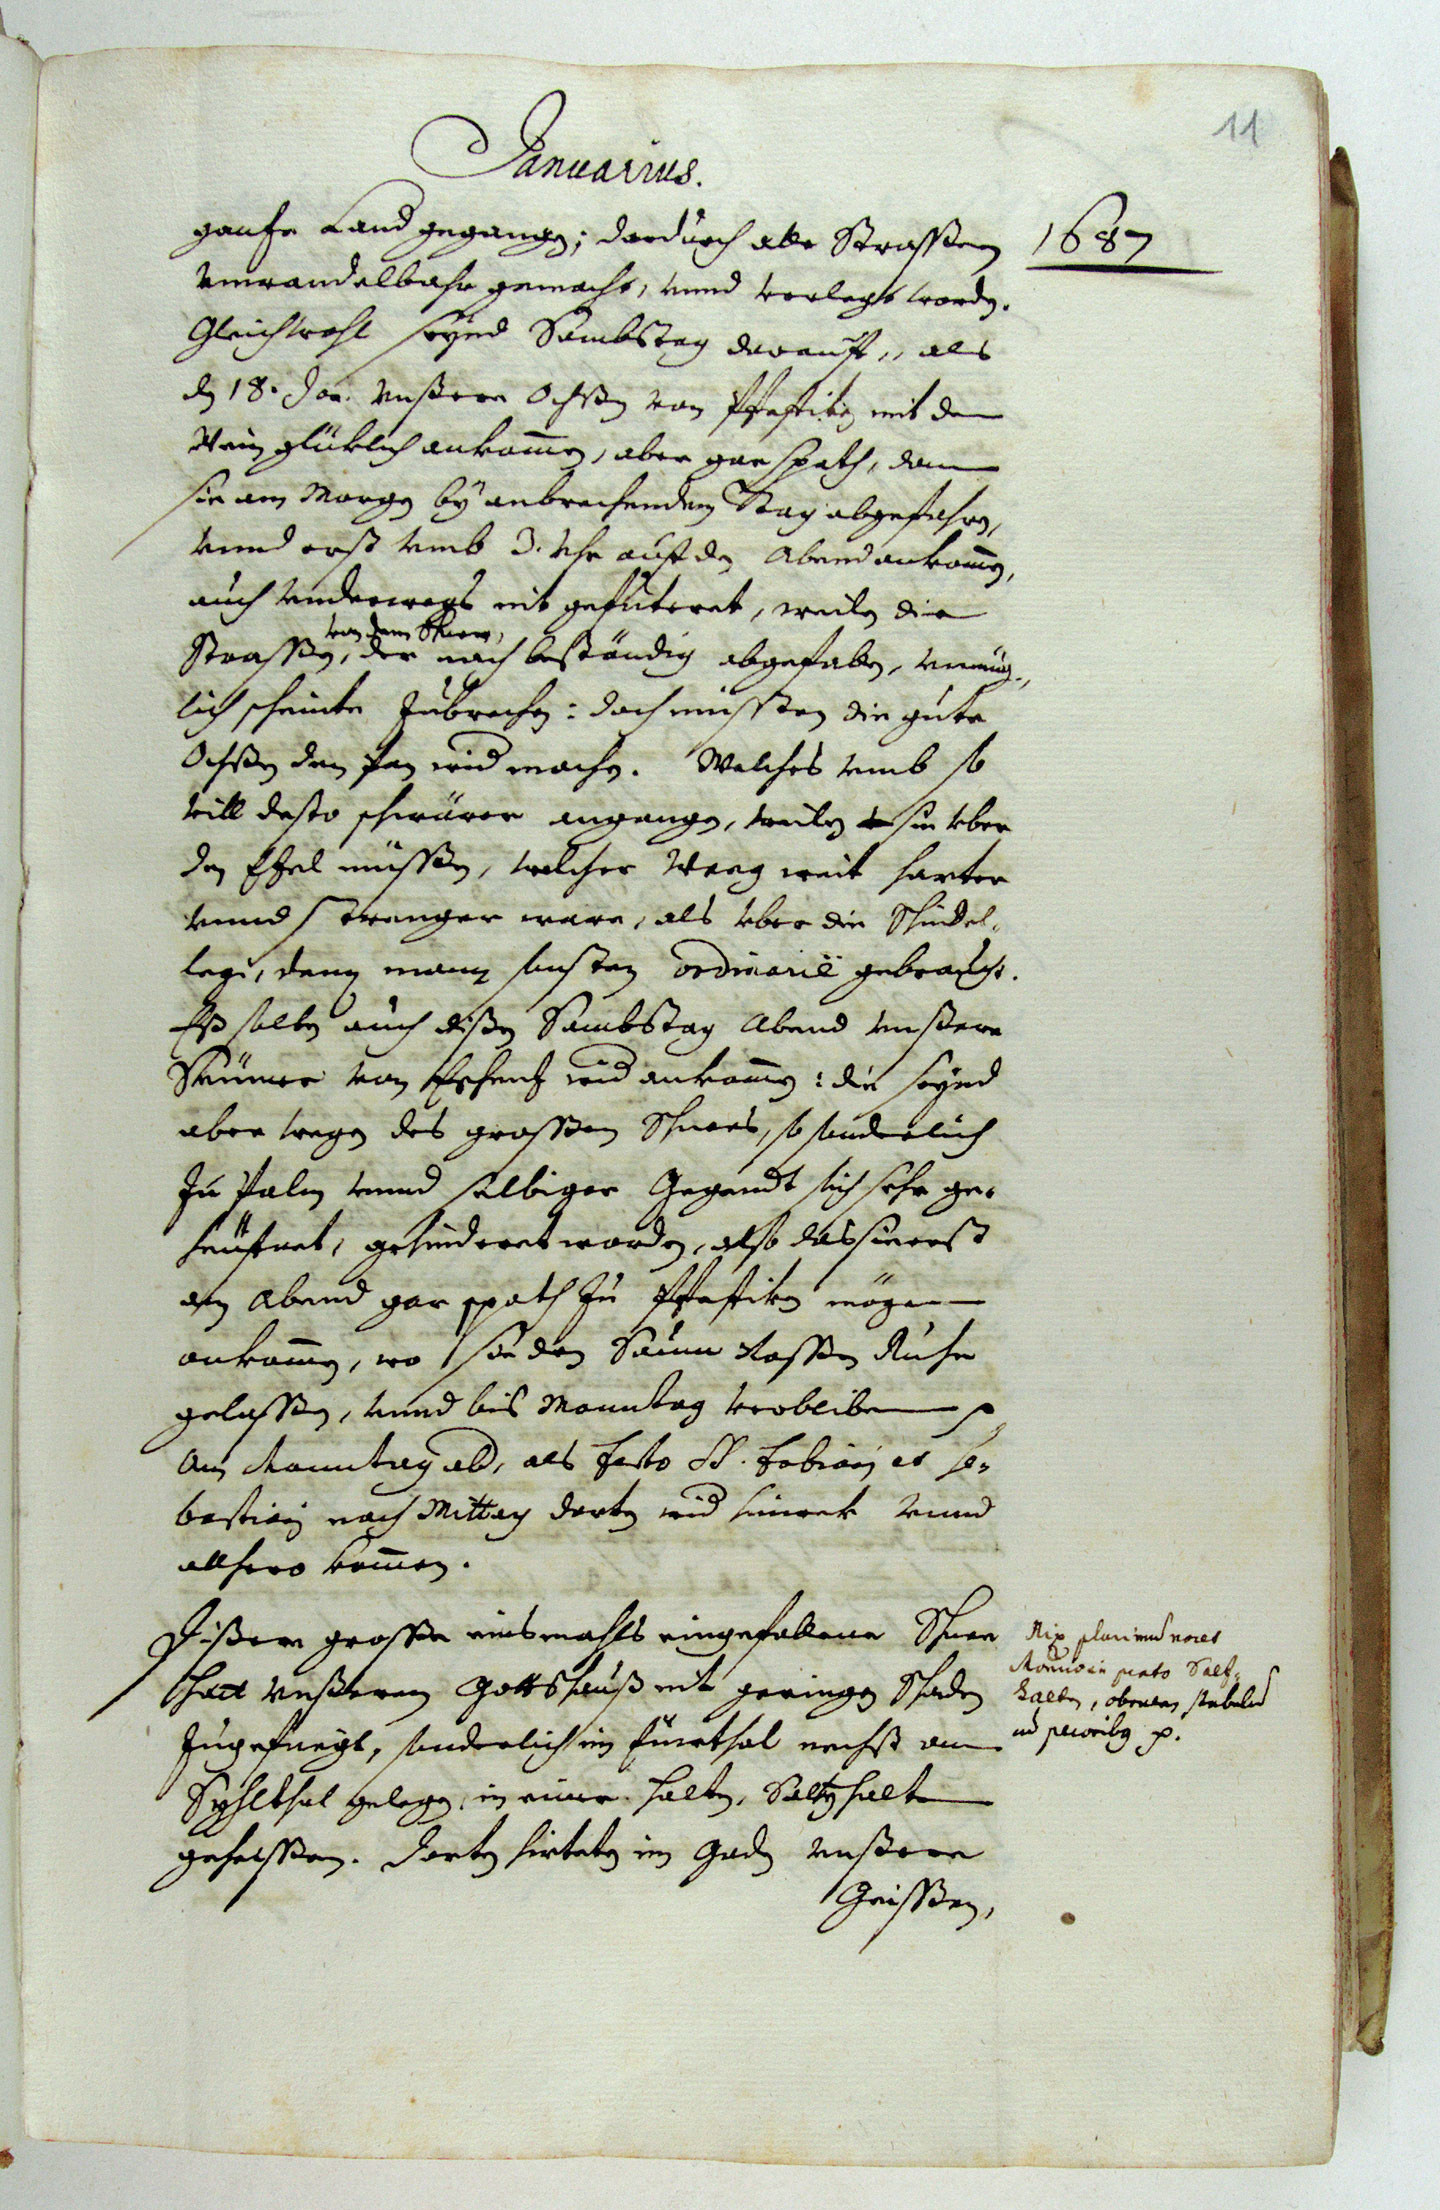 11
Januarius.
1687
gantze Land gegangen; dardurch alle Strassen
unwandelbahr gemacht, unnd verlegt worden.
Gleichwohl seynd Sambstag darauff, als
den 18. Jan. unsere Ochssen von Pfeffikon mit dem
Wein glüklich ankommen, aber gar spath, dann
sie am Morgen by anbrechendem Tag abgefahren,
unnd erst umb 3. Uhr auff den Abend ankommen,
auch underwegs nit gefüteret, weilen die
Strassen, von dem Schnew, der noch beständig abgefallen, unmüg-
lich scheinte zubrechen: doch müssten die gute
Ochssen den Pan wid machen. Welches umb so
vill desto schwärer angangen, weilen sie uber
den Etzel müssen, welcher Weeg weit harter
unnd strenger ware, als uber die Schindel-
legi, den mann sonsten ordinariè gebraucht.
Ess solten auch dissen Sambstag Abend unsere
Säumer von Eschentz wid ankommen: die seynd
aber wegen des grossen Schnees, so sonderlich
zu und selbiger Gegendt sich sehr ge-
heüffnet, gehinderet worden, also das sie erst
am Abend gar spath zu Pfeffikon mögen
ankommen, wo sie den Saum Rossen Ruhe
gelassen, unnd bis Monntag verbliben
Am Monntag als festo SS. Fabiani et Se-
bastiani nach Mittag dorten wid hinwek unnd
allhero kommen.
Dissere grosse einsmahls eingefallene Schnee
hatt unserem Gottshauss nit geringen Schaden
zugefüegt, sonderlich im nechst am
Syhlthal gelegen, in einer Halten, Saltzhalten
geheissen. Dorten hirteten im Gaden unsere
Geissen,
Nix plurimum nocet
Monrio in prato Saltz-
halten, obruens stabulum
cum pecoribus p.